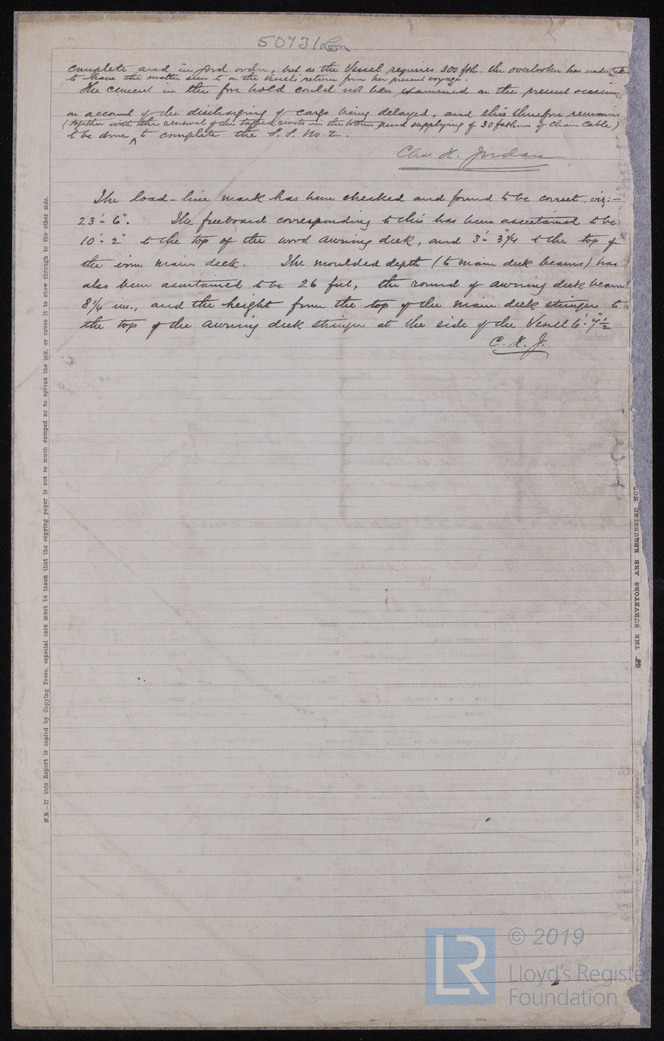 50731 Lon
complete and in good order, but as the Vessel requires 300 fth. the overlooker has undertaken
to have the matter seen to on the Vessel's return from her present voyage.
The cement in the fore hold could not be examined on the present occasion
on account of the discharging of cargo being delayed, and this therefore remains
(together with the renewal of the rivets in the bottom and supplying of 30 fathoms of Chain Cable)
to be done ^ to complete the S.S. No 2.
Chas H. Jordan
The load-line mark has been checked and found to be correct, viz:-
23'-6". The freeboard corresponding to this has been ascertained to be
10'-2" to the top of the wood awning deck, and 3'-3¾" to the top of
the iron main deck. The moulded depth (to main deck beams) has
also been ascertained to be 26 feet, the round of awning deck beam
8½ ins., and the height from the top of the main deck stringer to
the top of the awning deck stringer at the side of the Vessel 6'-7½"
C. H. J.
N.B.—If this Report is copied by Copying Press, especial care must be taken that the copying paper is not so much damped as to spread the ink, or cause it to show through to the other side.
THE SURVEYORS ARE REQUESTED NOT
LR
© 2019
Lloyd's Register
Foundation